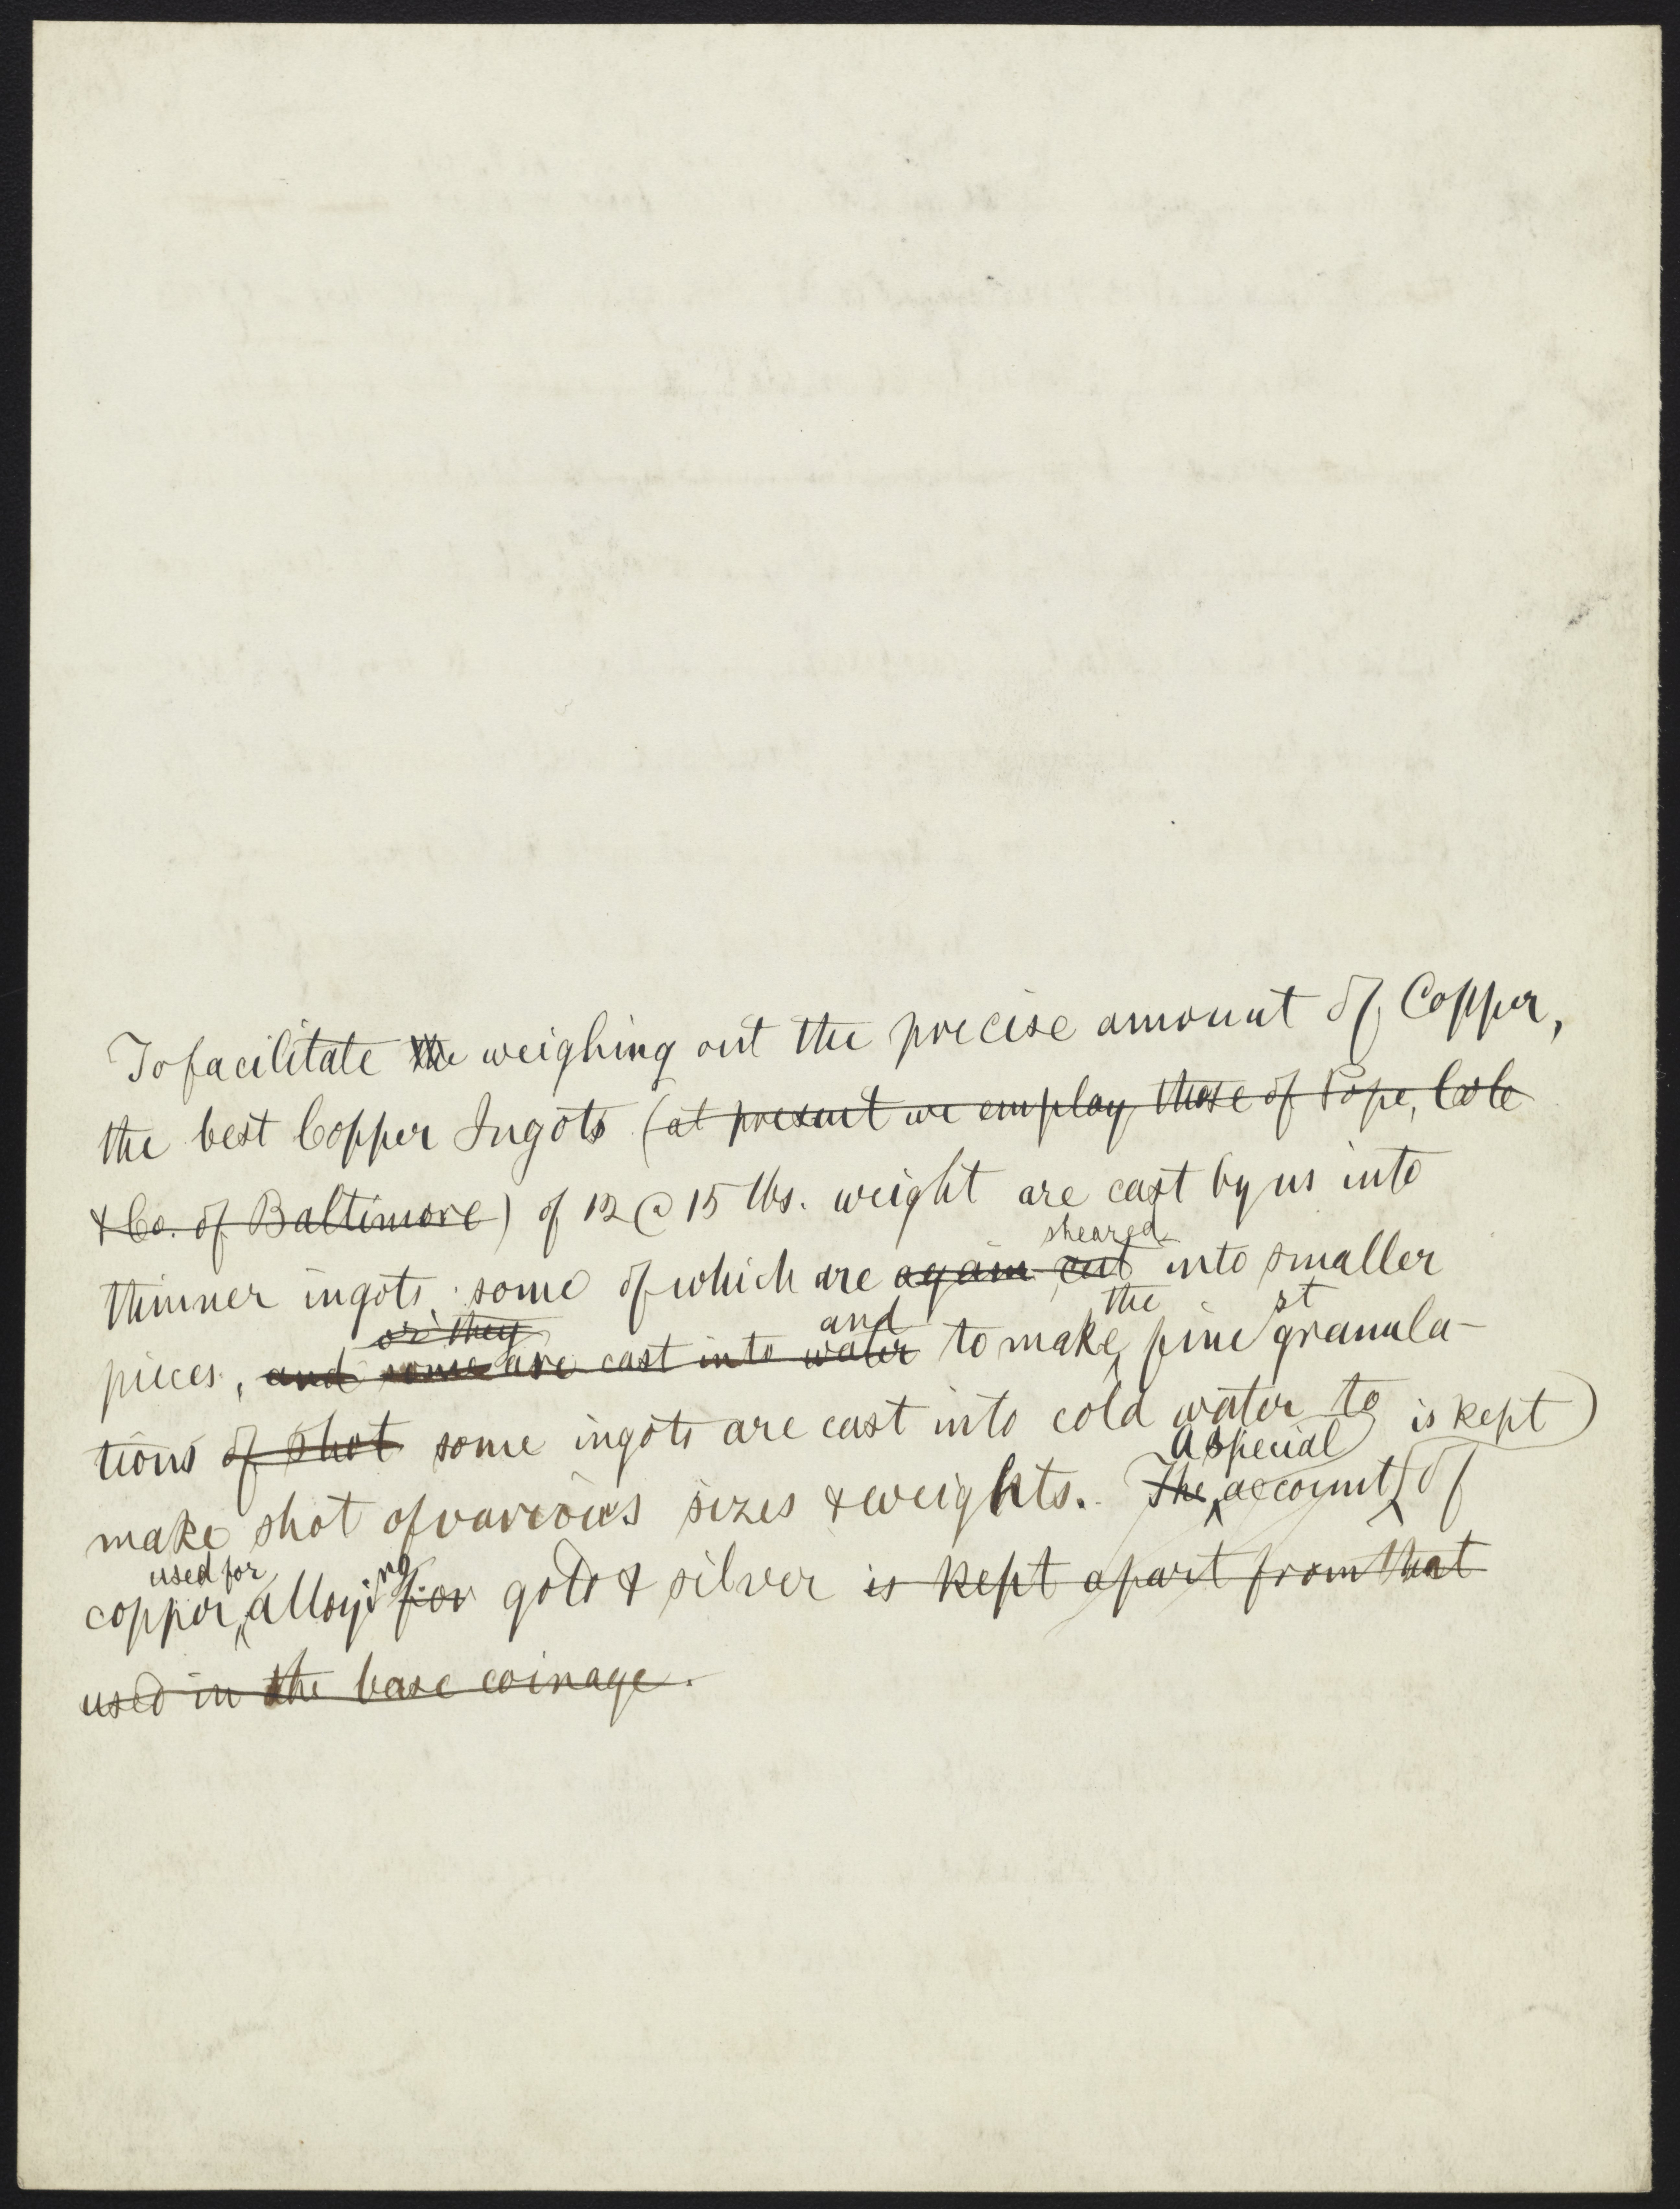 To facilitate the weighing out the precise amount of Copper,
the best Copper Ingots (at present we employ those of Pope, Cole
& Co. of Baltimore) of 12 @ 15 lbs. weight are cast by us into
sheared
thinner ingots, some of which are again cut into smaller
or they and the st
pieces, and some are cast into water to make fine granula-
tions of shot some ingots are cast into cold water to is kept
a special
make shot of various sizes & weights. The account of
used for ng
copper, alloyi for gold & silver is kept apart from that
used in the base coinage.